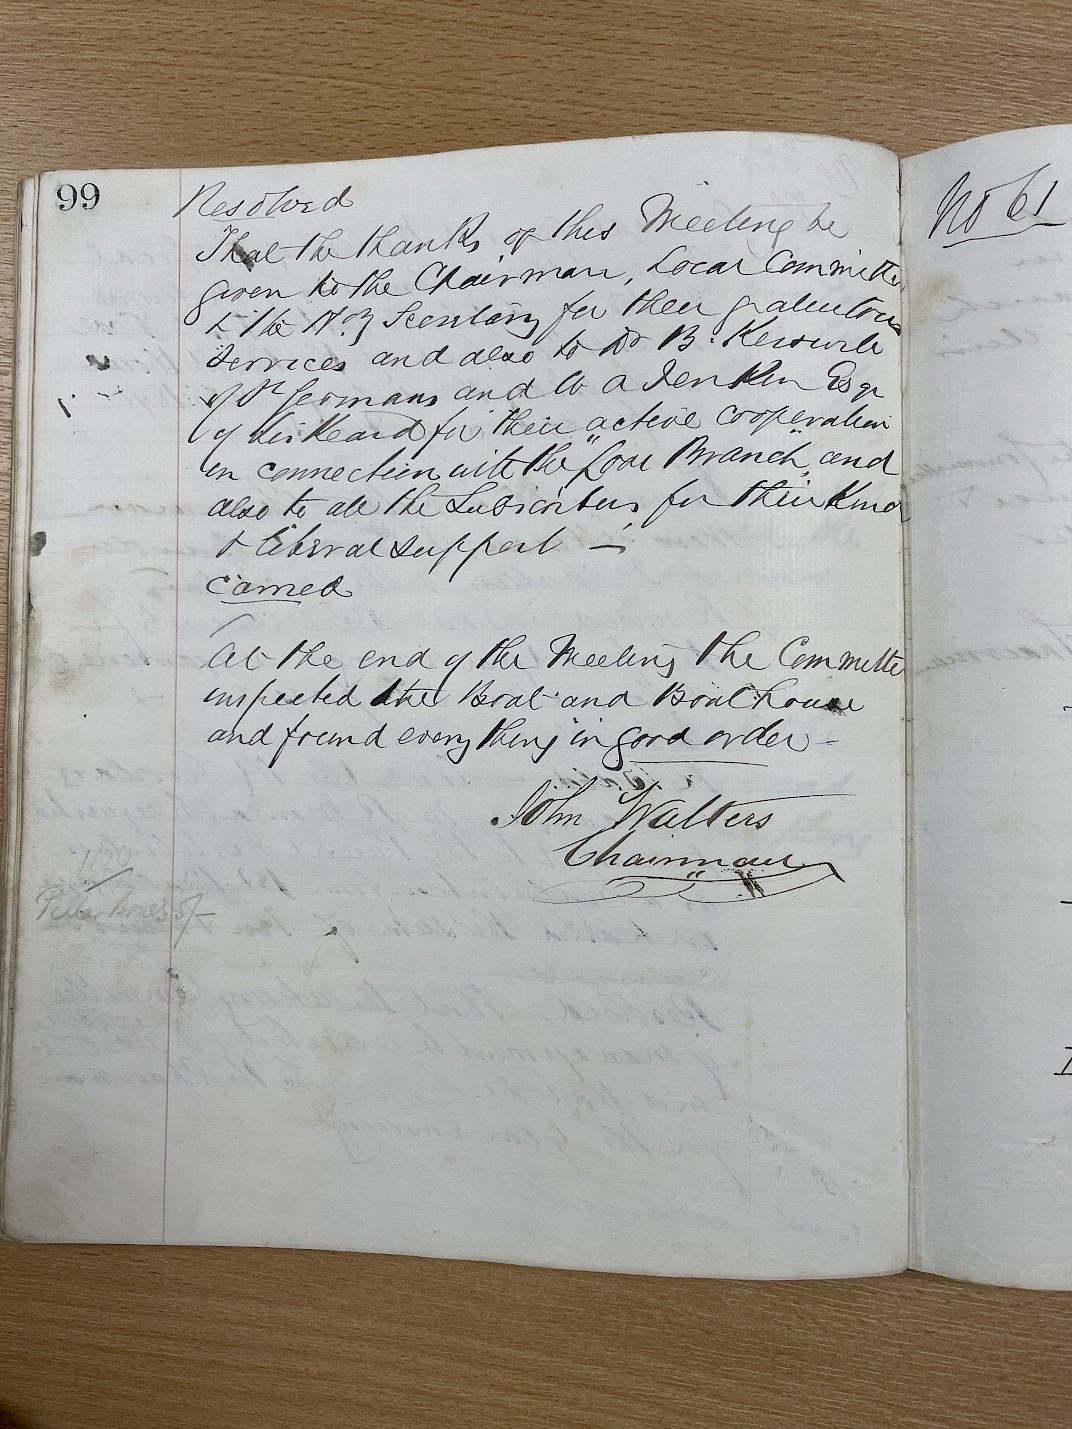 99
Resolved
That the thanks of this Meeting be
given to the Chairman, Local Committe
& the Hon Secretary for their gratuitous
Services and also to Dr B. Kerswill
of St Germans and to A Jenkin Esqr
of Liskeard for their active cooperation
in connection with the "Looe Branch" and
also to all the Subscribers for their Kind
& liberal support —
carried
At the end of the Meeting the Committe
inspected the Boat and Boat house
and found everything in good order -
John Walters
Chairman
Pillar Boxes 5/-
No 61